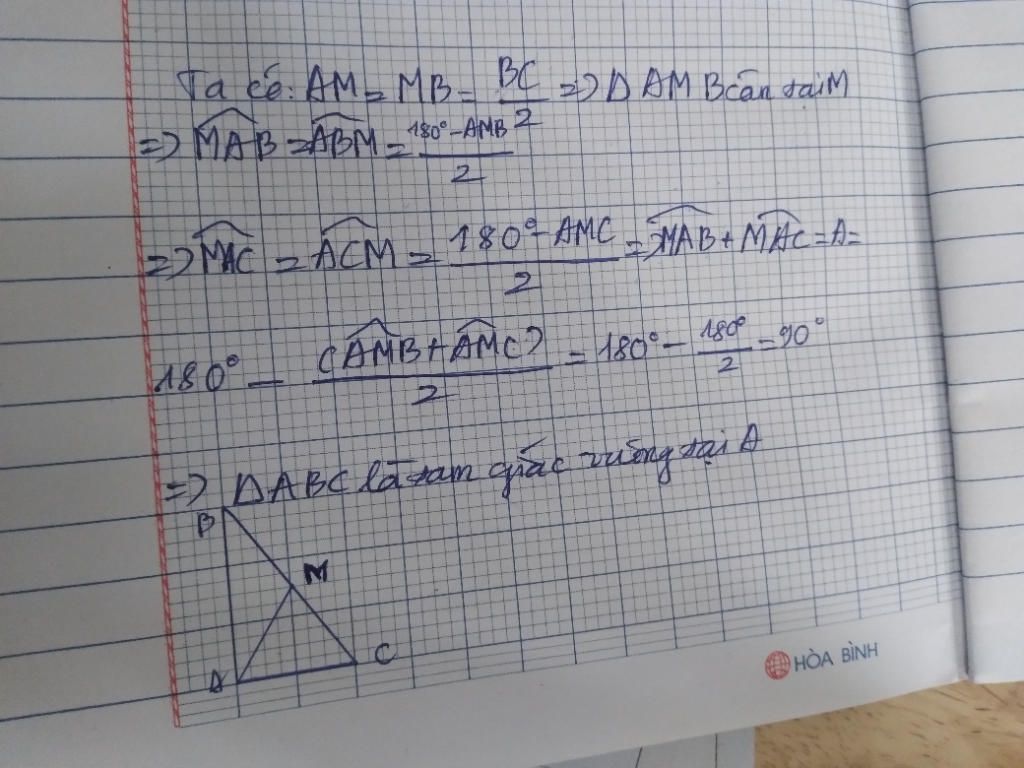 Ta có: AM = MB = BC/2 => Δ AMB cân tại M
=> \widehat{MAB} = \widehat{ABM} = (180° - AMB)/2
=> \widehat{MAC} = \widehat{ACM} = (180° - AMC)/2 => \widehat{MAB} + \widehat{MAC} = A =
180° - (\widehat{AMB} + \widehat{AMC})/2 = 180° - 180°/2 = 90°
=> ΔABC là tam giác vuông tại A
B
M
A
C
HÒA BÌNH